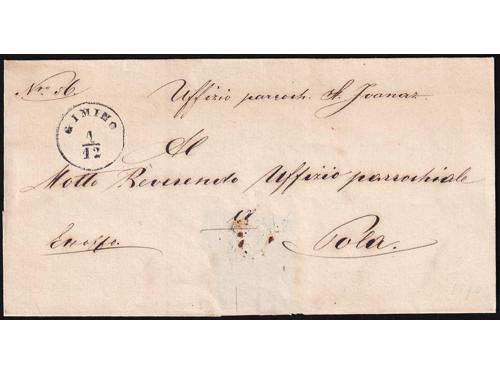 Nro 56.
Uffizio parroch. St. Ivanaz.
GIMINO
1/12
Al
Molto Reverendo Uffizio parrochiale
a
Pola.